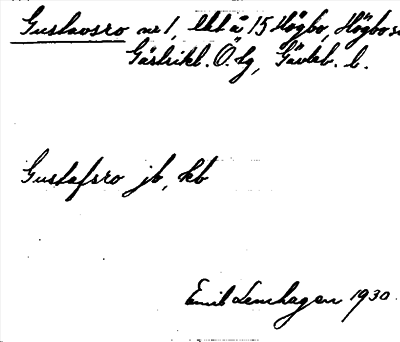 Gustavsro nr 1, lht å 15 Högbo, Högbo s
Gästrikl. Ö. tg, Gävleb. l.
Gustafsro jb, kb
Emil Lenhagen 1930.